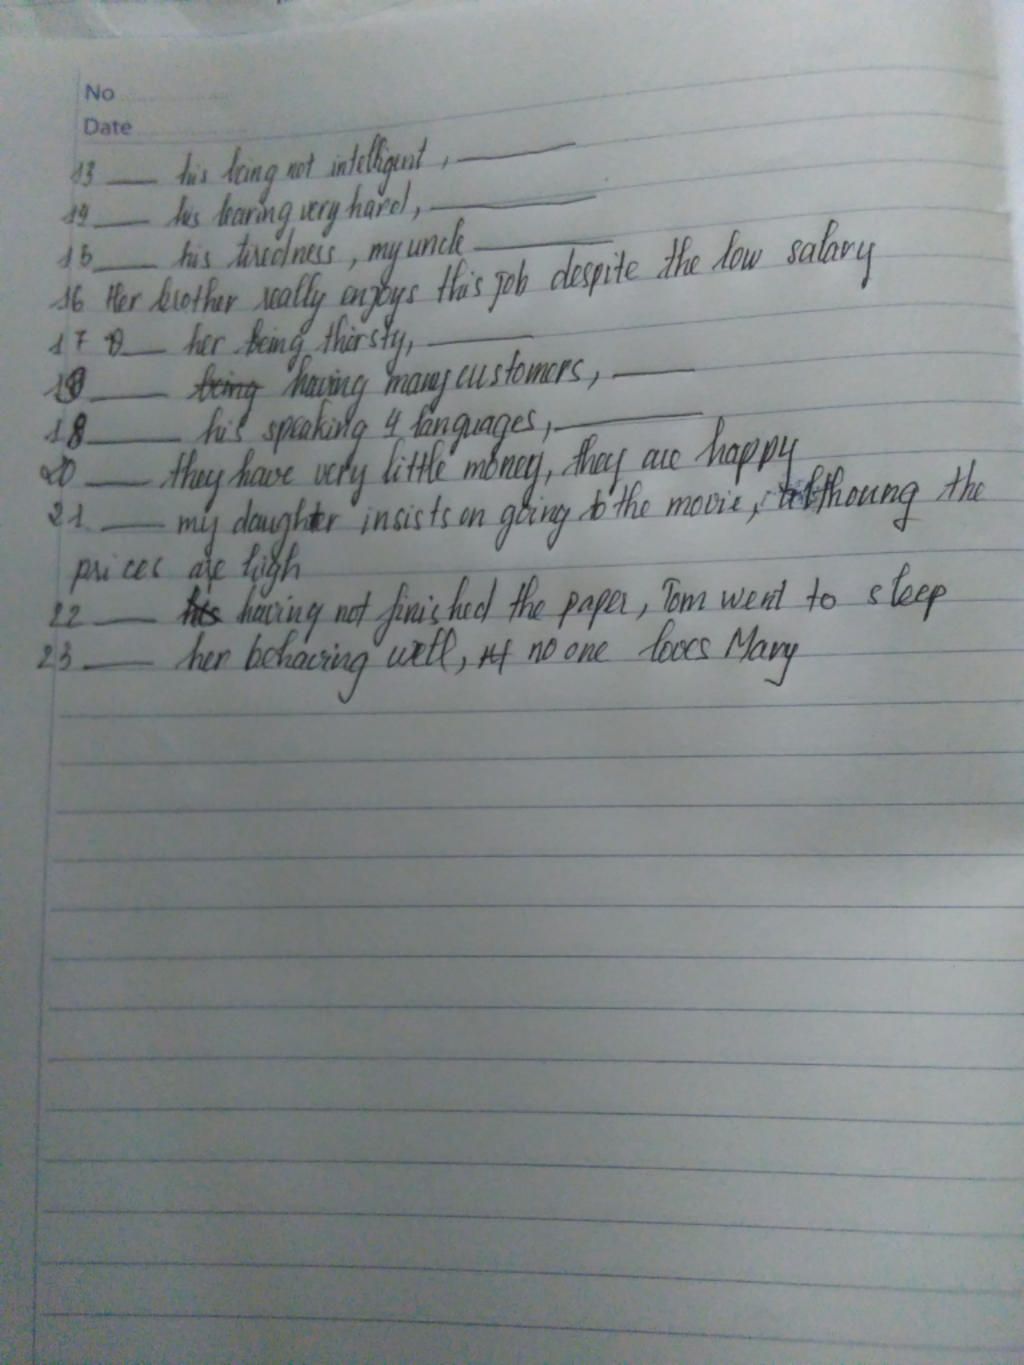 No
Date
13 ___ his being not intelligent, ___
14 ___ his learing very hard, ___
15 ___ his tiredness, my uncle ___
16 Her brother really enjoys this job despite the low salary
17 ___ her being thirsty, ___
18 ___ being having many customers, ___
18 ___ his speaking 4 languages, ___
20 ___ they have very little money, they are happy
21 ___ my daughter insists on going to the movie, althoung the
prices are high
22 ___ his having not finished the paper, Tom went to sleep
23 ___ her behaving well, no one loves Mary